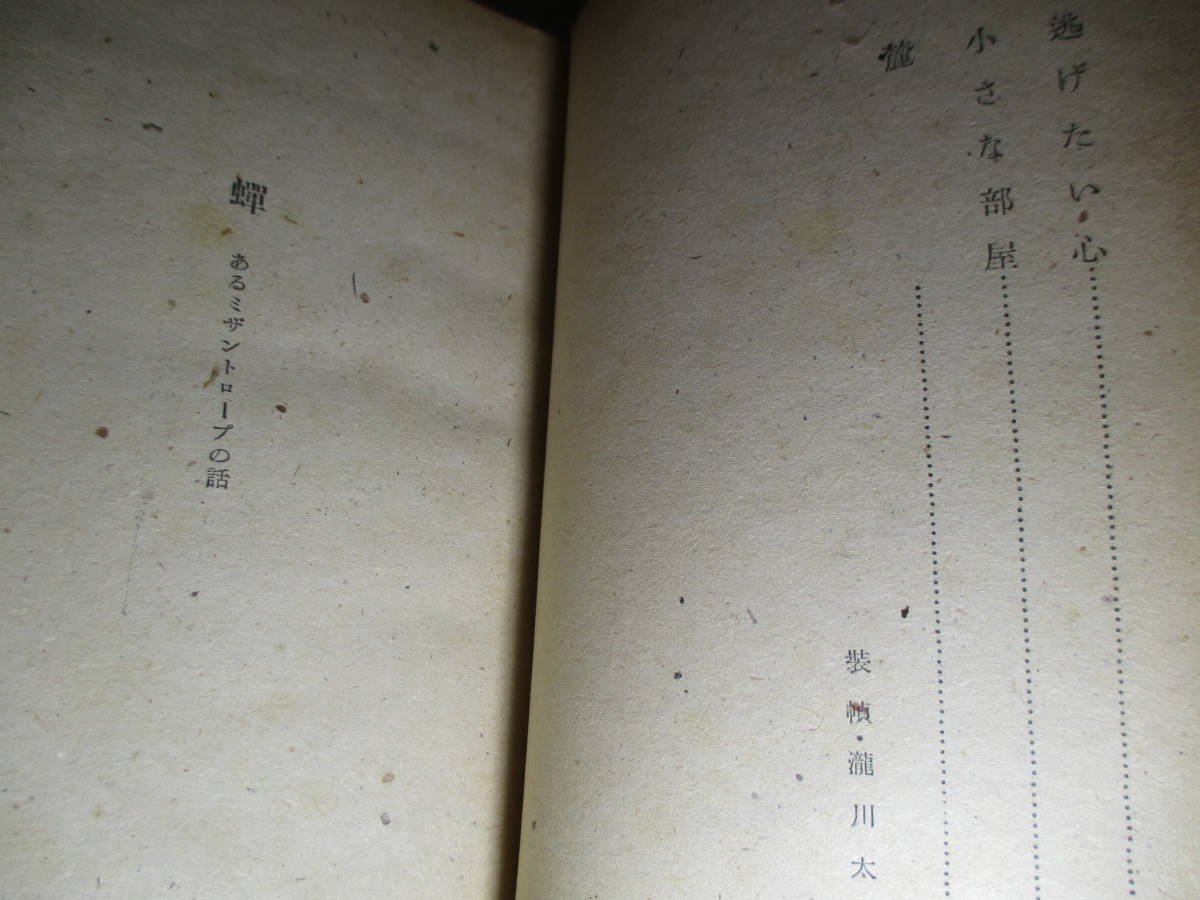 逃げたい心……………………………
小さな部屋……………………………
麓……………………………
裝幀・瀧川太
蟬 あるミザントロープの話